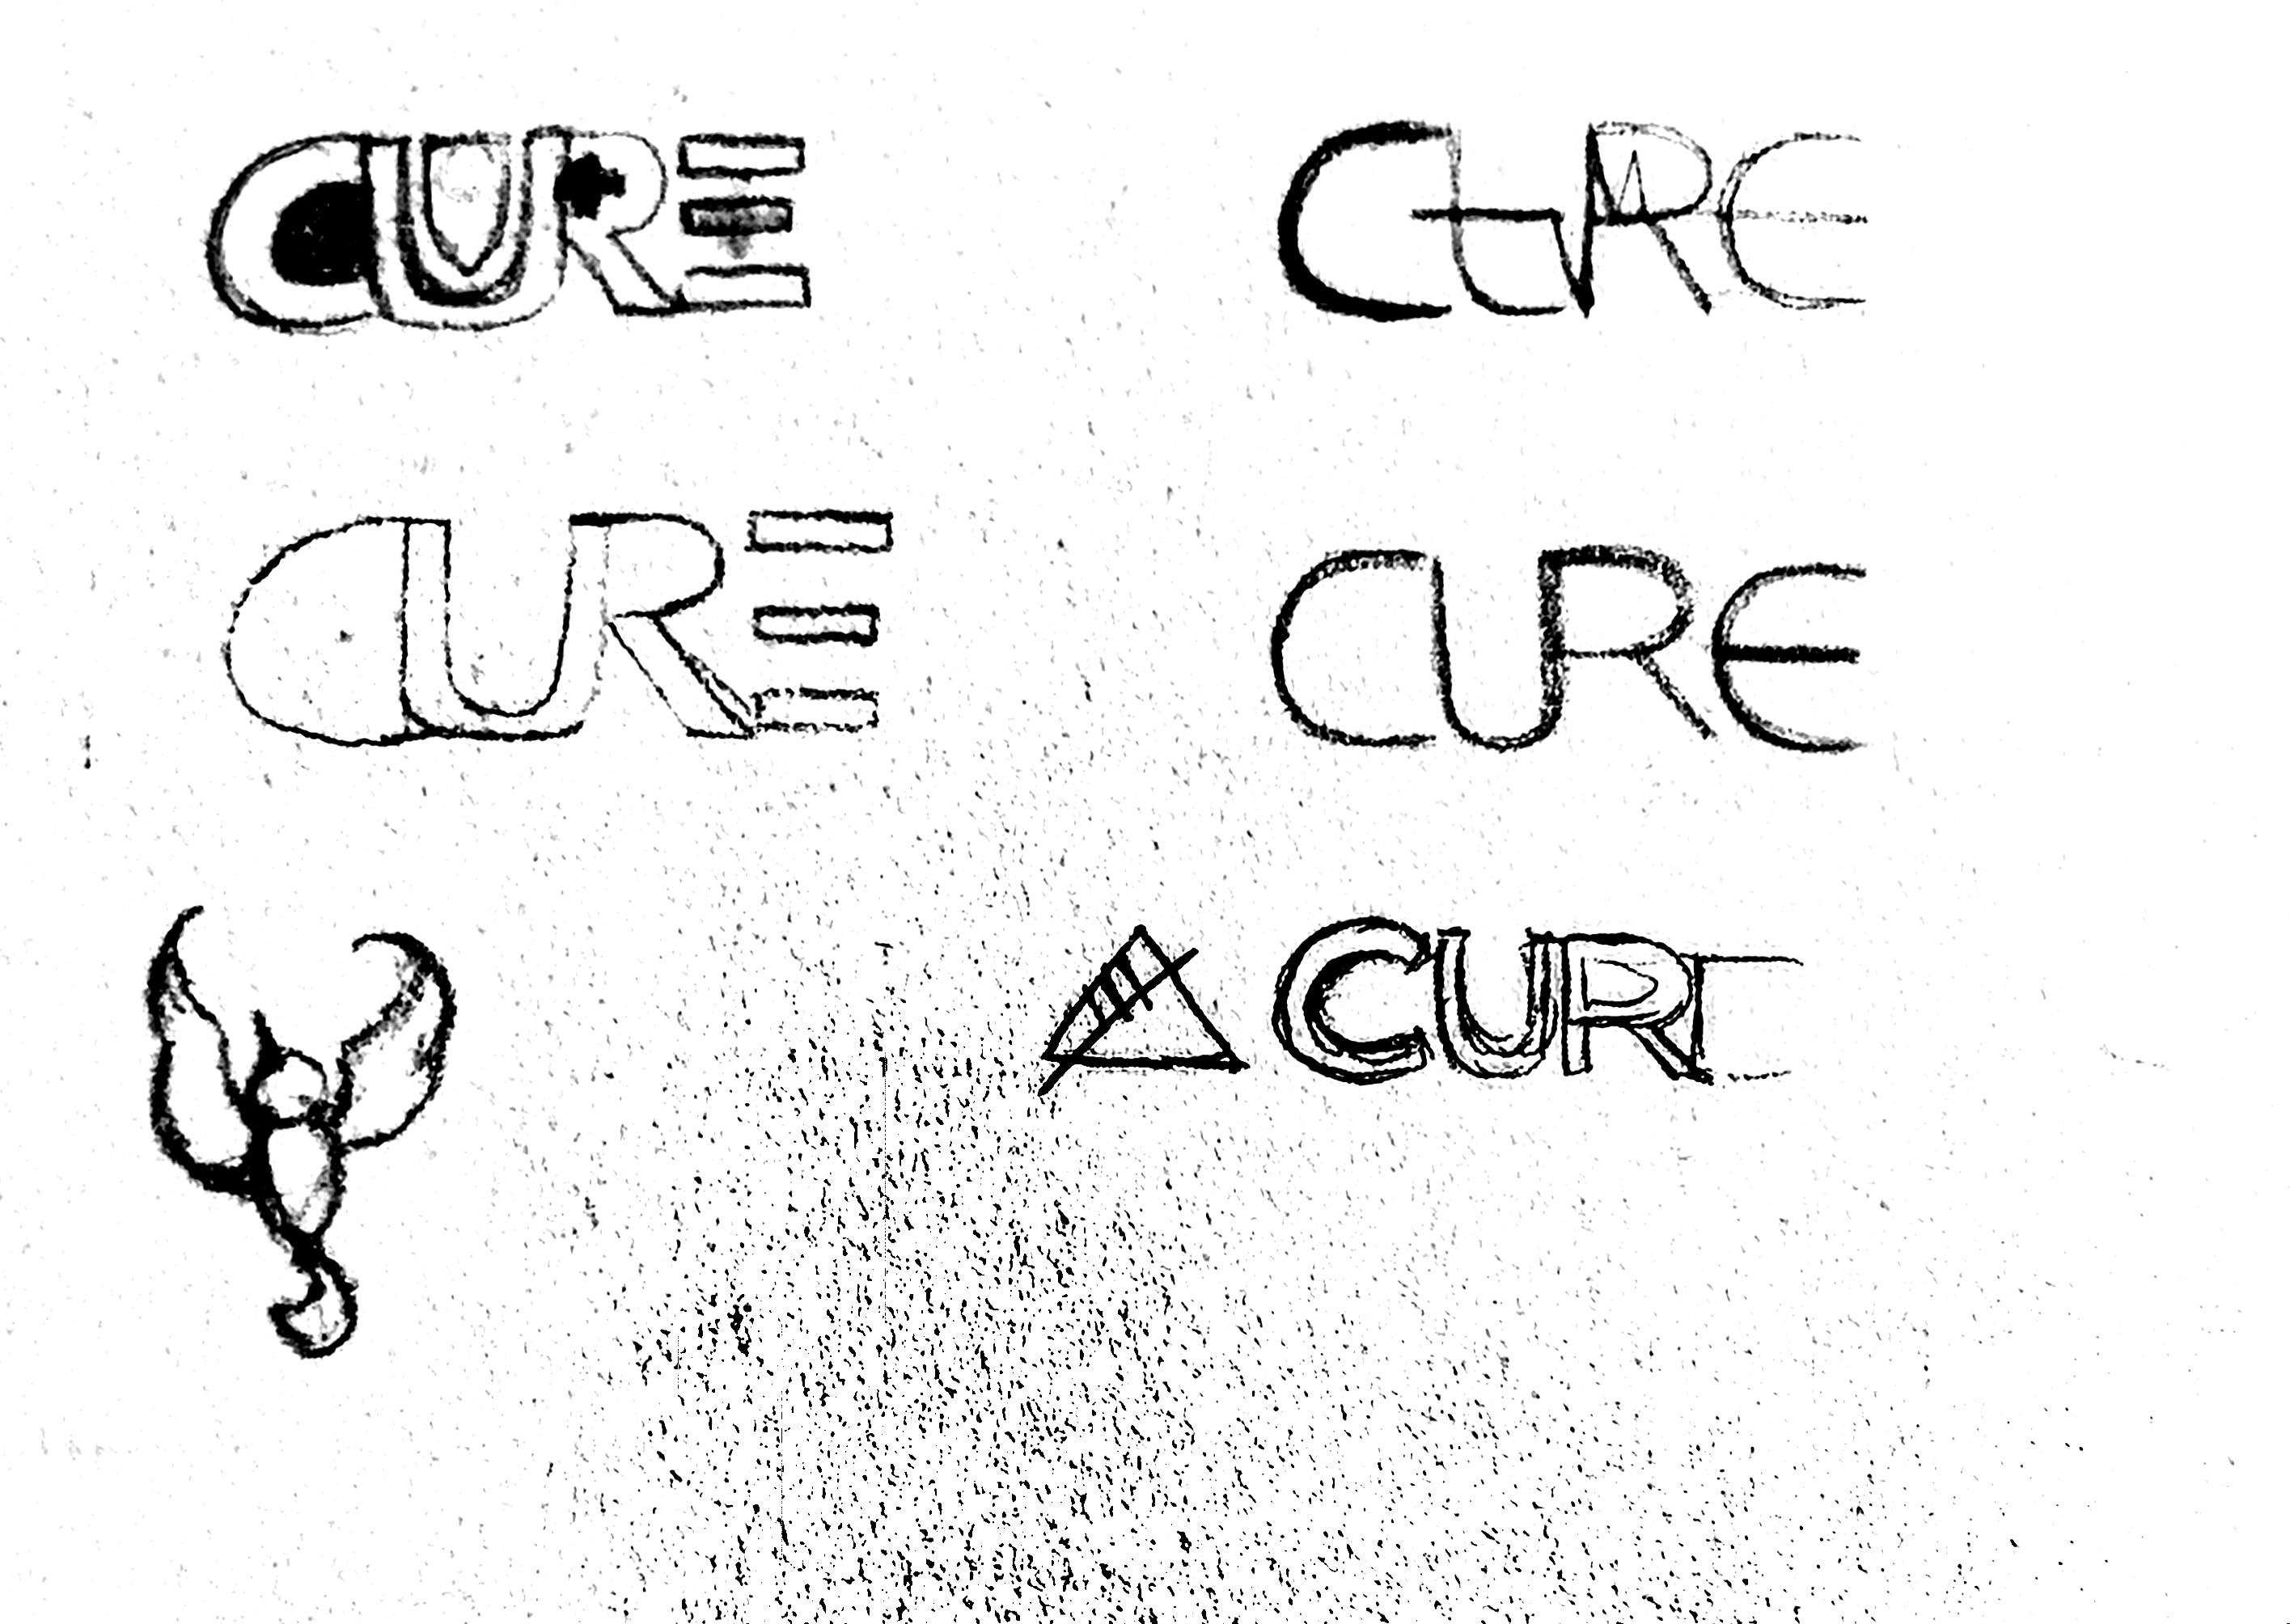 CURE CURE
CURE CURE
CURE